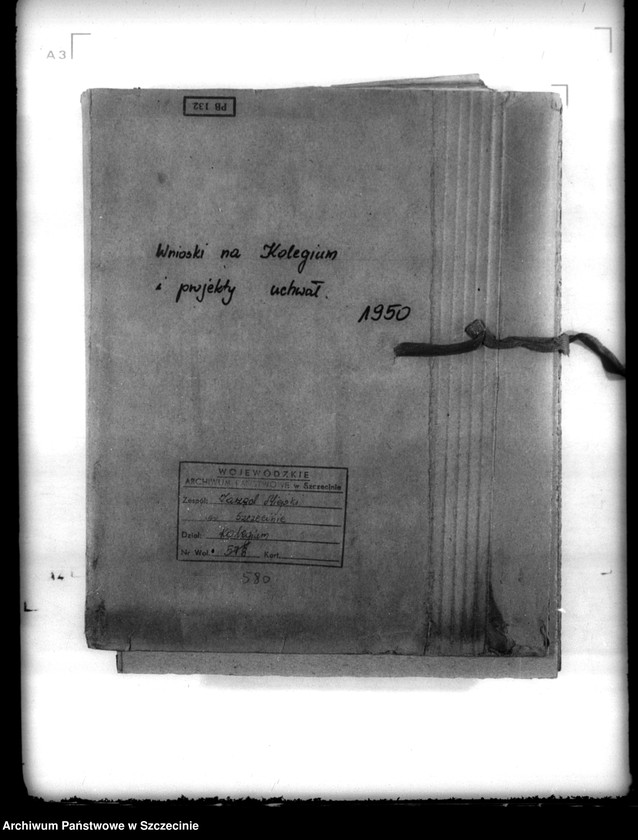 A3
PB 132
Wnioski na Kolegium
i projekty uchwał.
1950
WOJEWÓDZKIE
ARCHIWUM PAŃSTWOWE w Szczecinie
Zespół: Zarząd Miejski
Szczecinie
Dział: Kolegium
Nr. Wol. Kart.
580
Archiwum Państwowe w Szczecinie